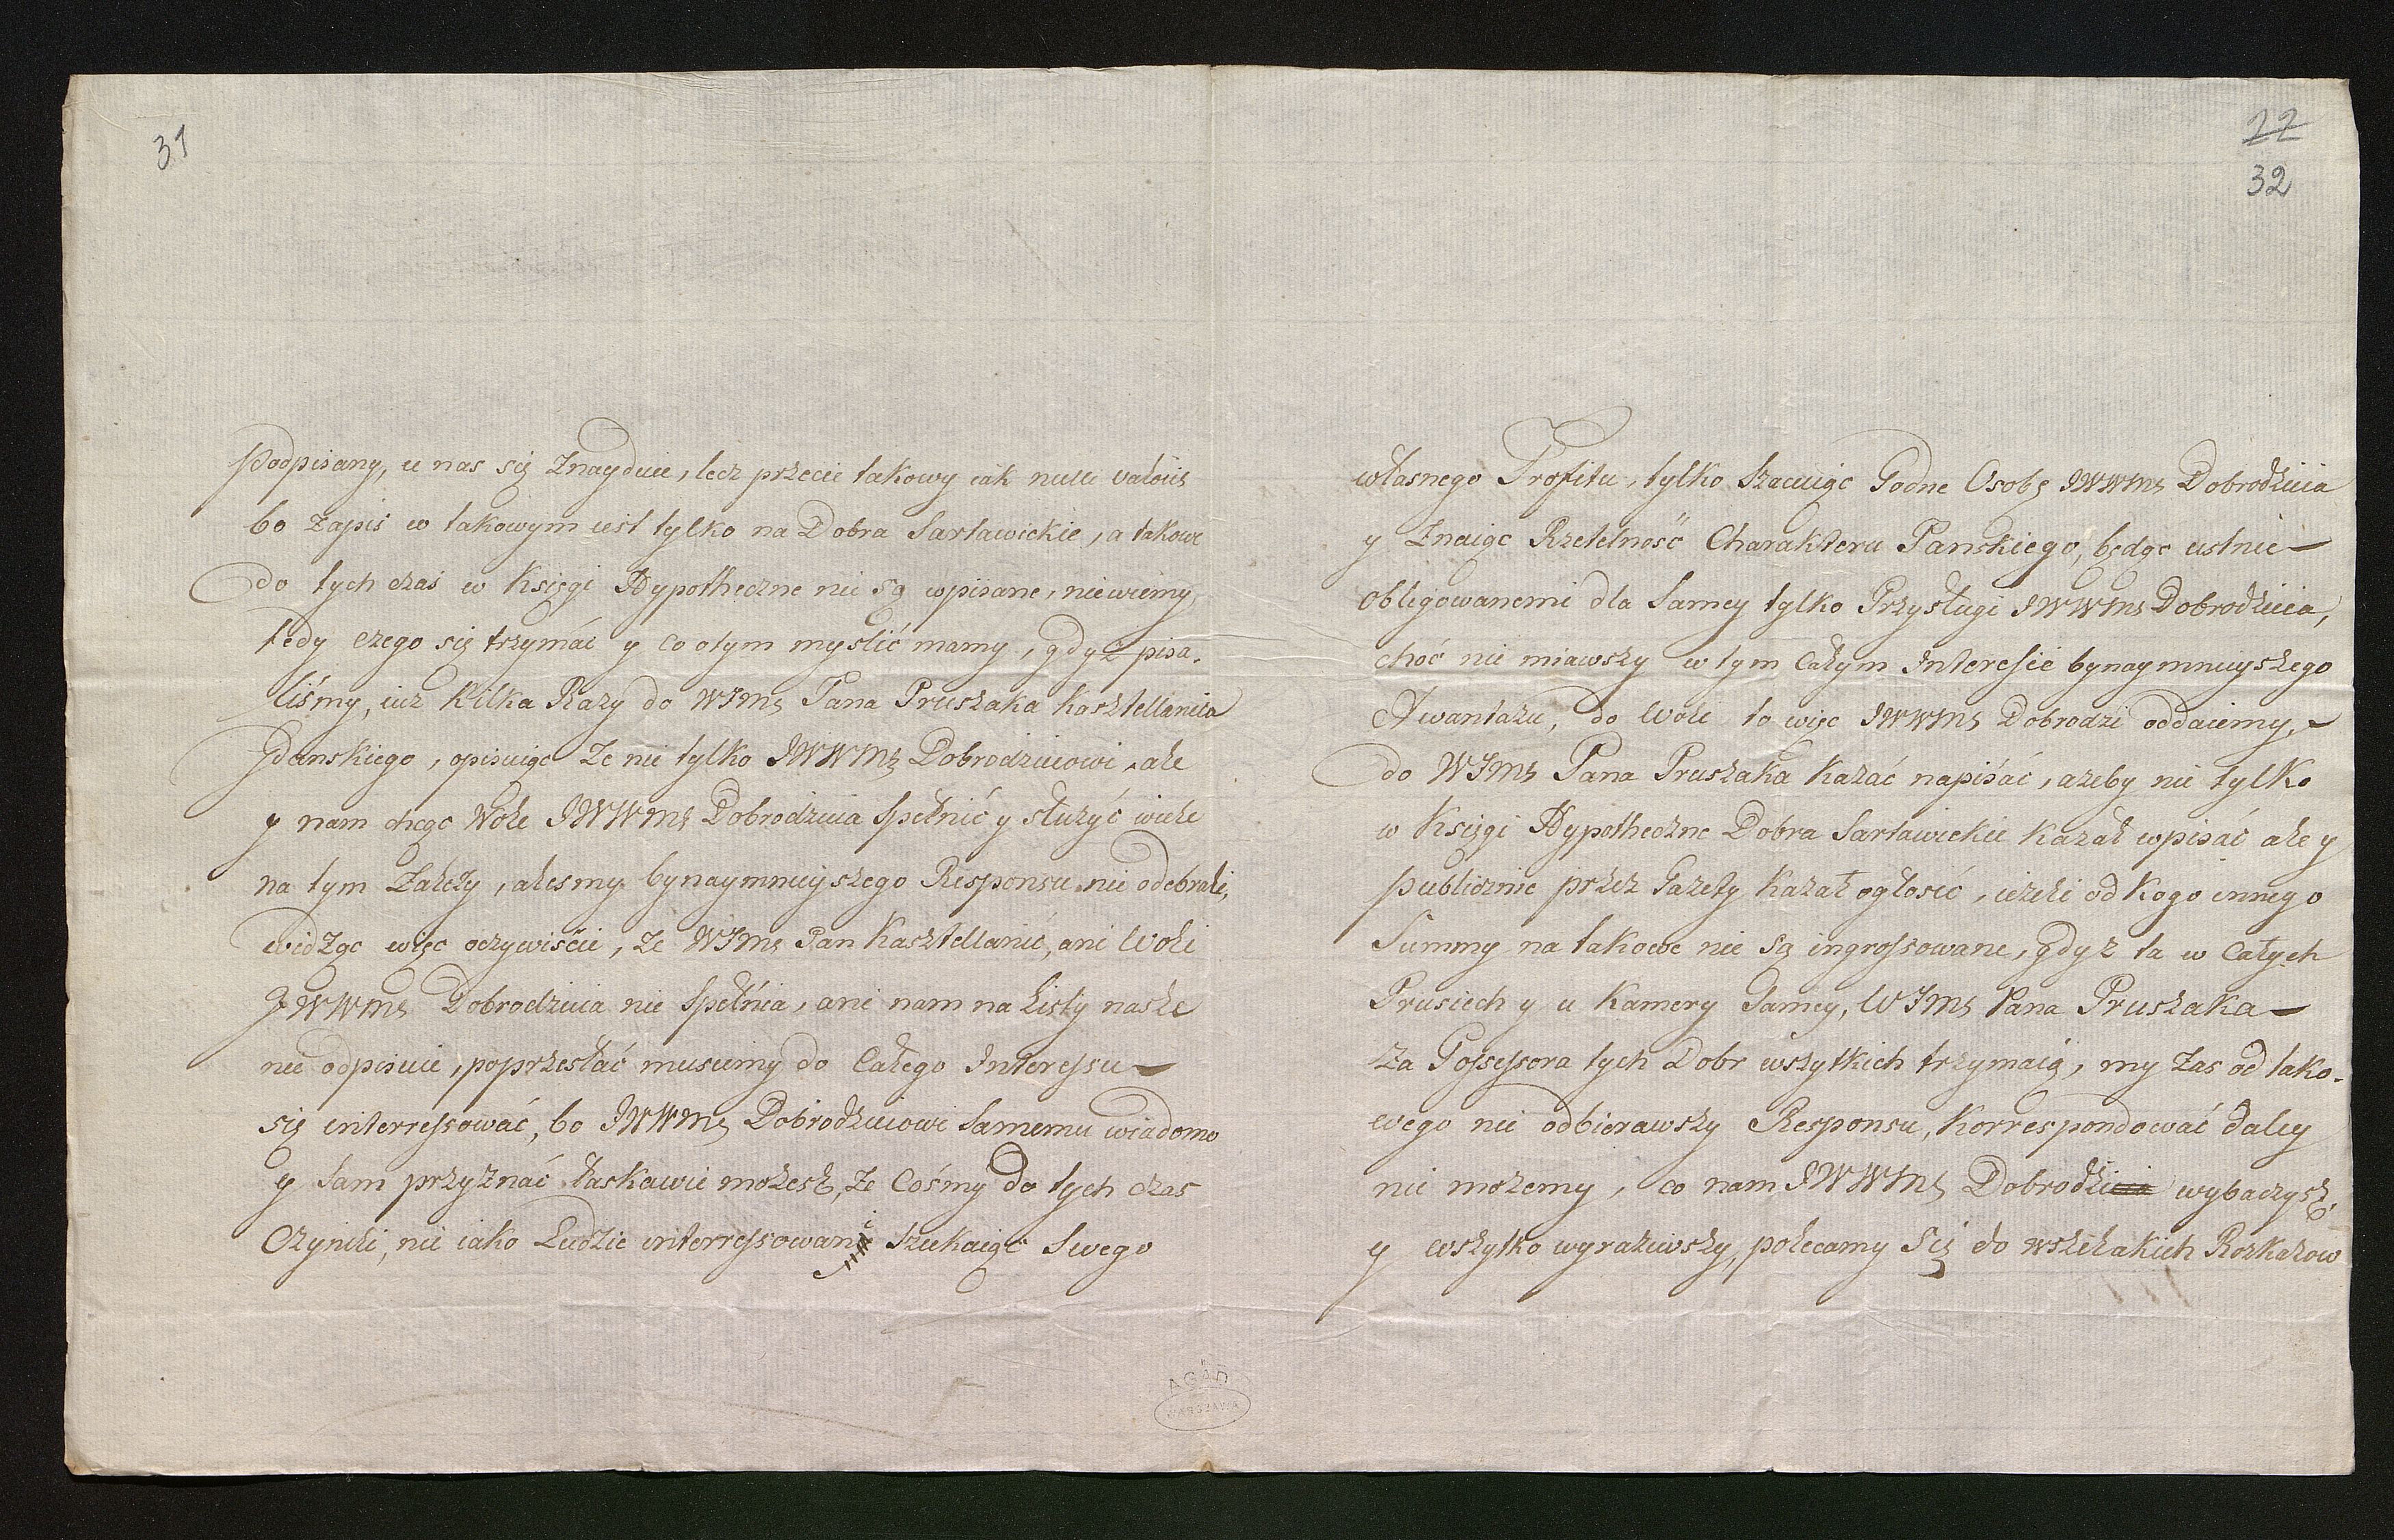 31
podpisany, u nas się Znayduie, lecz przecie takowy iak nulli valoris
bo Zapis w takowym iest tylko na Dobra Sartawickie, a takowe
do tych czas w Księgi Hypotheczne nie są wpisane, niewiemy
tedy czego się trzymać y co o tym myslić mamy, gdyż pisa-
liśmy, iuz Kilka Razy do WJmś Pana Pruszaka Kasztellanica
Gdanskiego, opisuiąc Ze nie tylko JWWMś Dobrodzieiowi, ale
y nam chcąc Wole JWWMś Dobrodzieia Spełnić y służyć wiele
na tym Zależy, alesmy bynaymnieyszego Responsu nie odebrali,
widząc więc oczywiście, że WJmś Pan Kasztellanic, ani Woli
JWWMś Dobrodzieia nie Spełnia, ani nam na Listy nasze
nie odpisuie, poprzestać musiemy do Całego Interessu
się interressować, bo JWWMś Dobrodzieiowi Samemu wiadomo
y Sam przyznać łaskawie możesz, Ze Cośmy do tych czas
Czynili, nie iako Ludzie interressowani Szukaiąc Swego
22
32
własnego Profitu, tylko Szacuiąc Godne Osobę JWWMś Dobrodzieia
y Znaiąc Rzetelność Charakteru Panskiego, będąc ustnie
obligowanemi dla Samey tylko Przysługi JWWMś Dobrodzieia,
choć nie miawszy w tym Całym Interessie bynaymnieyszego
Awantażu, do Woli to więc JWWMś Dobrodzi oddaiemy,
do WJmś Pana Pruszaka Kazać napisać, azeby nie tylko
w Księgi Hypotheczne Dobra Sartawickie Kazał wpisać ale y
publicznie przez Gazety Kazał ogłosić, ieżeli od Kogo innego
Summy na takowe nie są ingrossowane, gdyz ta w Całych
Prusiech y u Kamery Samey, WJmś Pana Pruszaka
Za Possessora tych Dobr wszytkich trzymaią, my Zas od tako-
wego nie odbierawszy Responsu, Korrespondować daley
nie możemy, co nam JWWMś Dobrodzieia wybaczysz,
y wszytko wyraziwszy, polecamy Się do wszelakich Rozkazow
AGAD
WARSZAWA